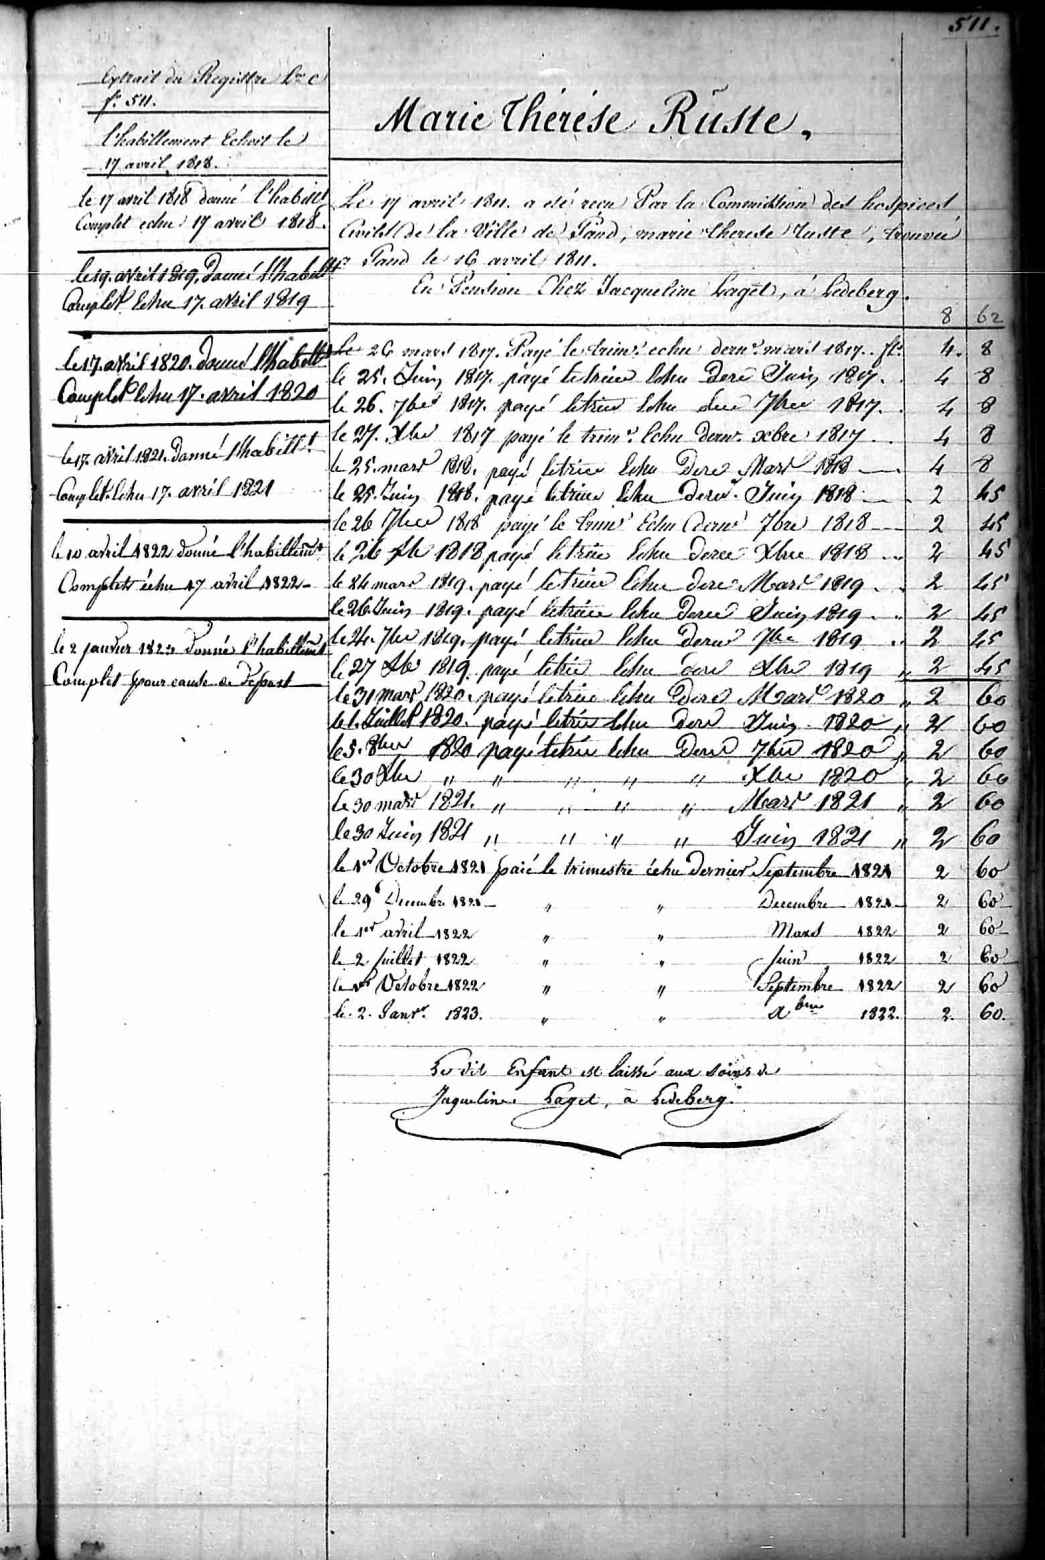 511.
Extrait du Registre Lre C
f° 511.
l'habillement Echoit le
17 avril 1818.
le 17 avril 1818 donné l'habillt
Complet echu 17 avril 1818.
le 19. avril 1819. Donné l'habillt
Complet Echu 17. avril 1819
le 17. avril 1820. Donné l'habillt
Complet Echu 17. avril 1820
le 17. avril 1821. Donné l'habillt
Complet Echu 17. avril 1821
le 10 avril 1822 donné l'habillemt
Complet échu 17 avril 1822
le 2 janvier 1823 donné l'habillemt
Complet pour cause de Départ
Marie Thérése Ruste.
Le 17 avril 1811. a été reçu Par la Commission des hospices
Civils de la Ville de Gand, marie therese Ruste, trouvée
Gand le 16 avril 1811.
En Pension Chez Jacqueline Laget, à Ledeberg.
8 62
Le 26 mars 1817. Payé le trimt echu dernr mars 1817. fl. 4. 8
le 25. Juin 1817. payé le Echu Juin 1817. 4 8
le 26. 7bre 1817. payé le Echu 7bre 1817. 4 8
le 27. Xbre 1817 payé le trimt Echu dernr xbre 1817 4 8
le 25. mars 1818. payé le Echu Mars 1818 4 8
le 25. Juin 1818. payé le Echu Juin 1818 2 45
le 26 7bre 1818 payé le trimt Echu dernr 7bre 1818 2 45
le 26 Xbre 1818 payé le Echu Xbre 1818 2 45
le 24 mars 1819. payé le Echu Mars 1819 2 45
le 26 Juin 1819. payé le Echu Juin 1819 2 45
le 24. 7bre 1819. payé le Echu 7bre 1819 2 45
le 27 Xbre 1819. payé le Echu Xbre 1819 " 2 45
le 31 mars 1820. payé le Echu Mars 1820 " 2 60
le 1. Juillet 1820. payé le Echu Juin 1820 " 2 60
le 5. 8bre 1820 payé le Echu 7bre 1820 " 2 60
le 30 Xbre " " " " " Xbre 1820 " 2 60
le 30 mars 1821. " " " " Mars 1821 " 2 60
le 30 Juin 1821 " " " " Juin 1821 " 2 60
le 1er Octobre 1821 paié le trimestre échu dernier Septembre 1821 2 60
le 29 Decembre 1821 " " Decembre 1821 2 60
le 1er avril 1822 " " Mars 1822 2 60
le 2 juillet 1822 " " juin 1822 2 60
le 1er Octobre 1822 " " Septembre 1822 2 60
le 2. Janvr 1823. " " Xbre 1822. 2. 60.
Le dit Enfant est laissé aux soins de
Jaqueline Laget, à Ledeberg.